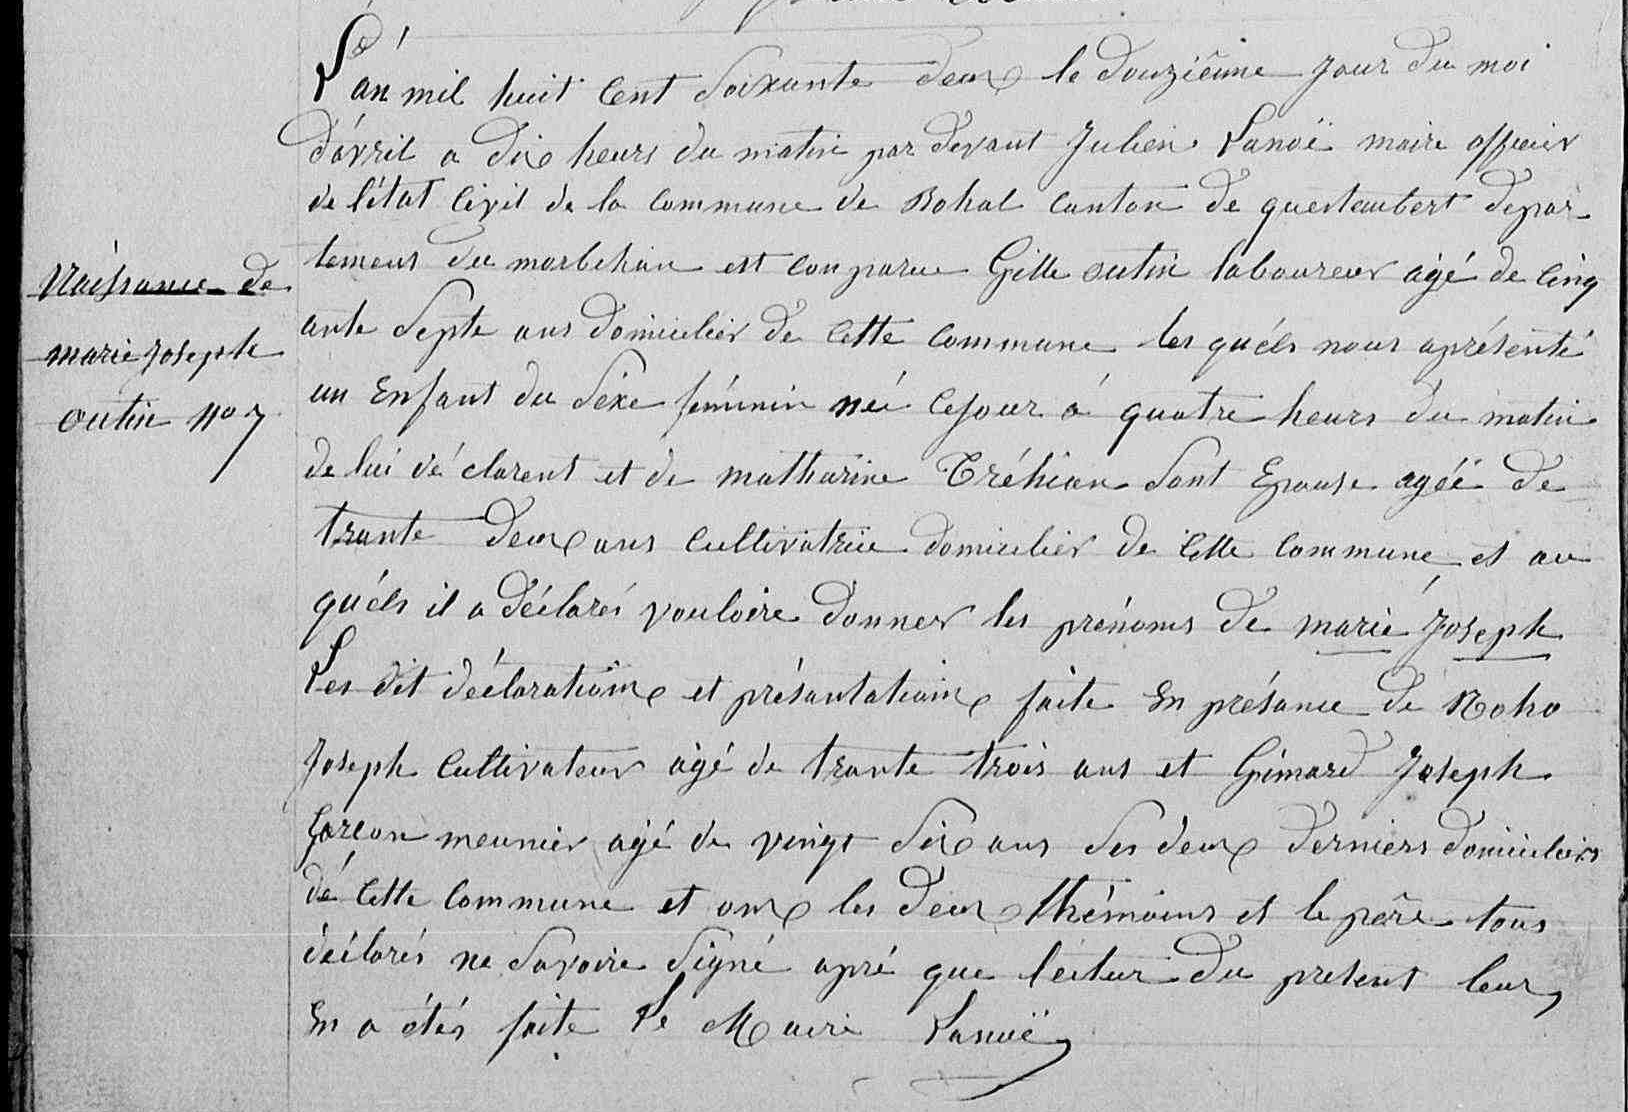 L'án mil huit Cent Soixante deux le douziême Jour du moi
d'ávril a dix heurs du matin par devant Julien Lanoë maire officier
de l'état Civil de la Commune de Bohal Canton de questembert depar-
tement du morbihan est Conparue Gille outin laboureur agé de Cinq
ante Septe ans domicilier de Cette Commune les quéls nous aprésenté
Naissance de
un Enfant du Séxe féminin néé Cejour á quatre heurs du matin
marie Joseph
de lui dé clarent et de matharine Tréhian Sont Epouse agéé de
outin no 7
trante deux ans Cultivatrice domicilier de Cette Commune et au
quéls il a déclarés vouloire donner les prénoms de marie Joseph
Les dit déclaration et présantation faite En présance de Noho
Joseph Cultivateur agé de trante trois ans et Gémard Joseph
Garcon meunier agé de vingt Six ans Ses deux derniers domiciliers
dé Cette Commune et onx les deux thémoins et le pére tous
déclarés ne Savoire Signé apré que lécture du present leur
En a étés faite Le Maire Lanoë